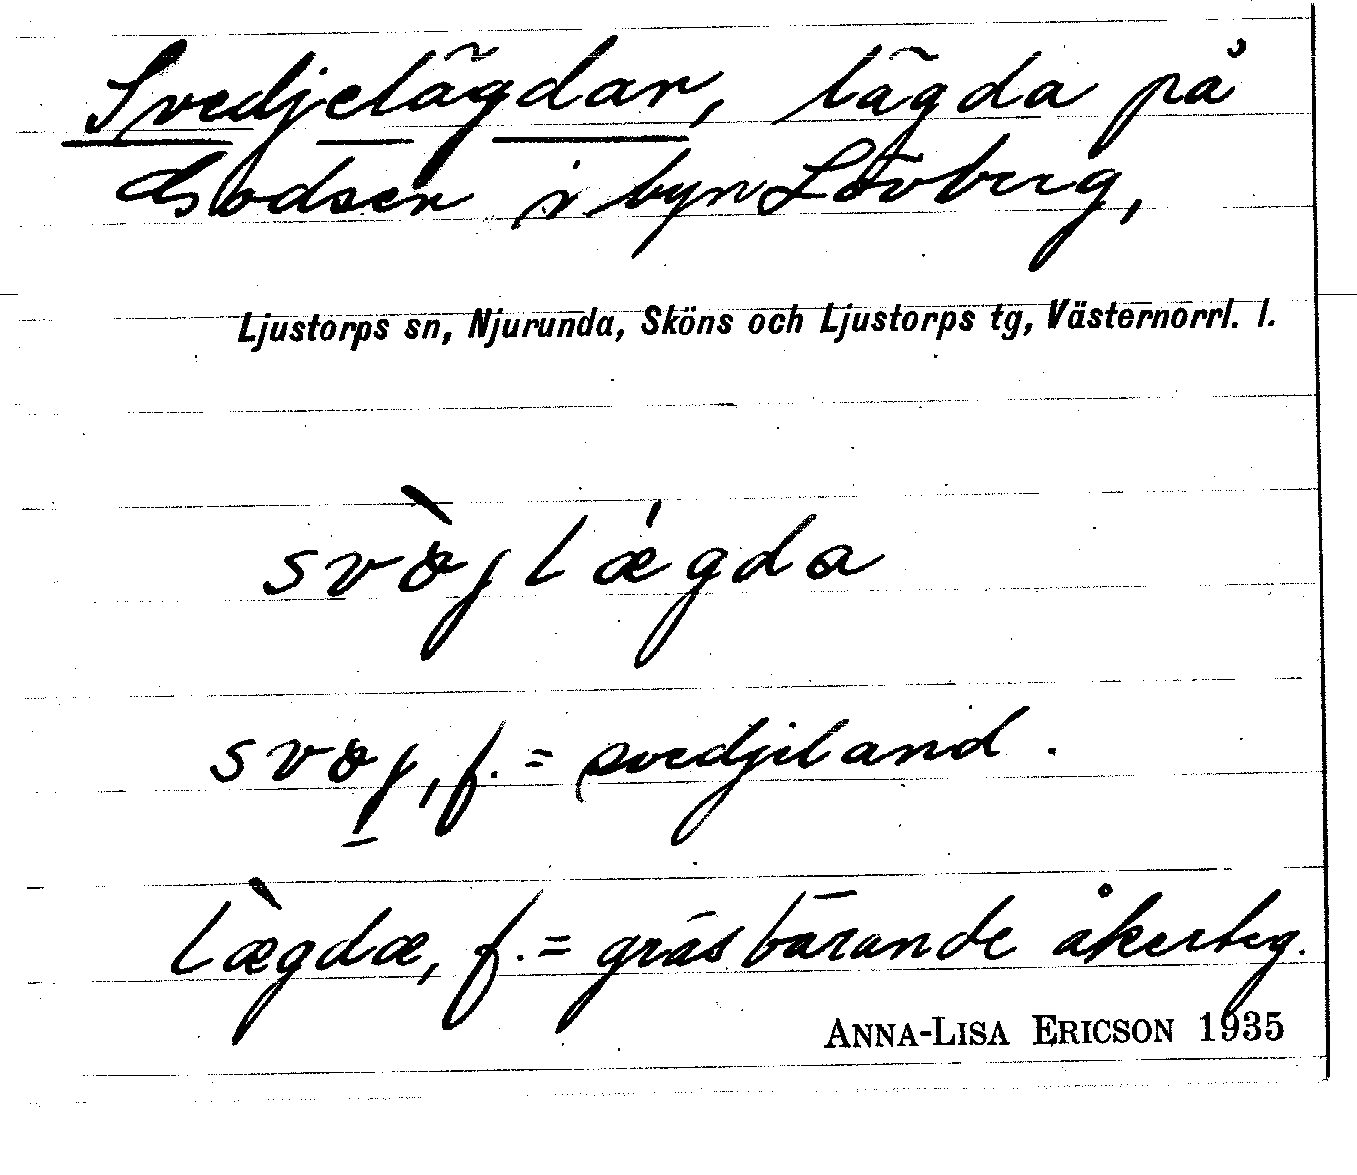 Svedjelägdar, lägda på
Godsen i byn Lövberg,
Ljustorps sn, Njurunda, Sköns och Ljustorps tg, Västernorrl. l.
svø̀jlǽgda
svøj, f. = svedjeland.
læ̀gdæ, f. = gräsbärande åkerteg.
ANNA-LISA ERICSON 1935